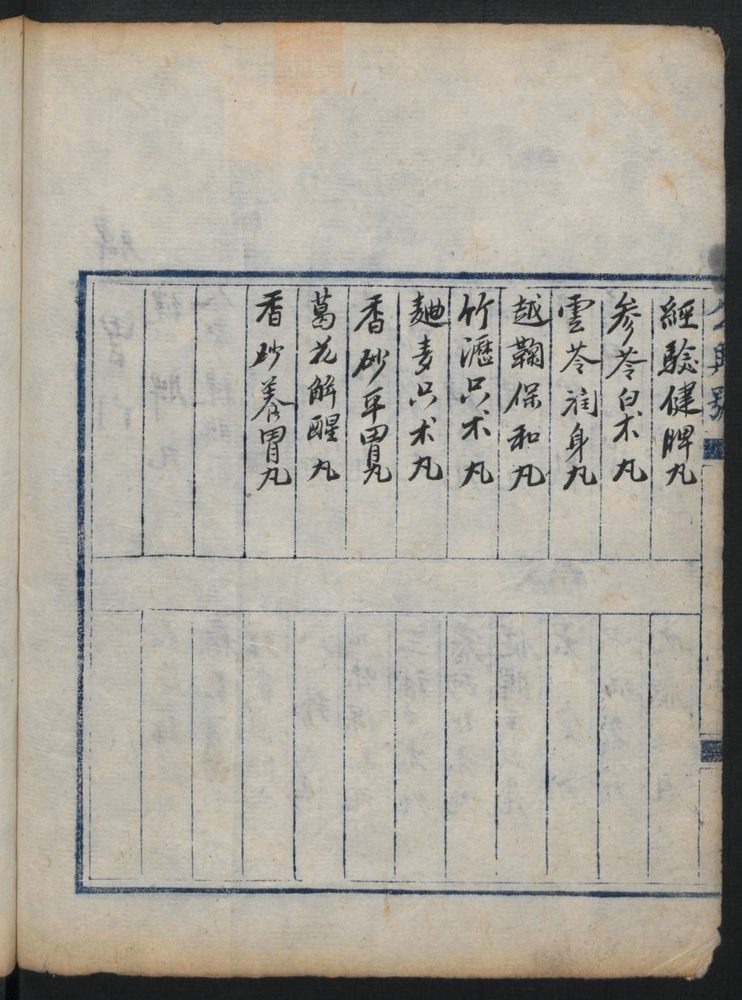 經驗健脾丸
參苓白朮丸
雲苓潤身丸
越鞠保和丸
竹瀝只朮丸
麯麦只术丸
香砂平胃丸
葛花解醒丸
香砂养胃丸